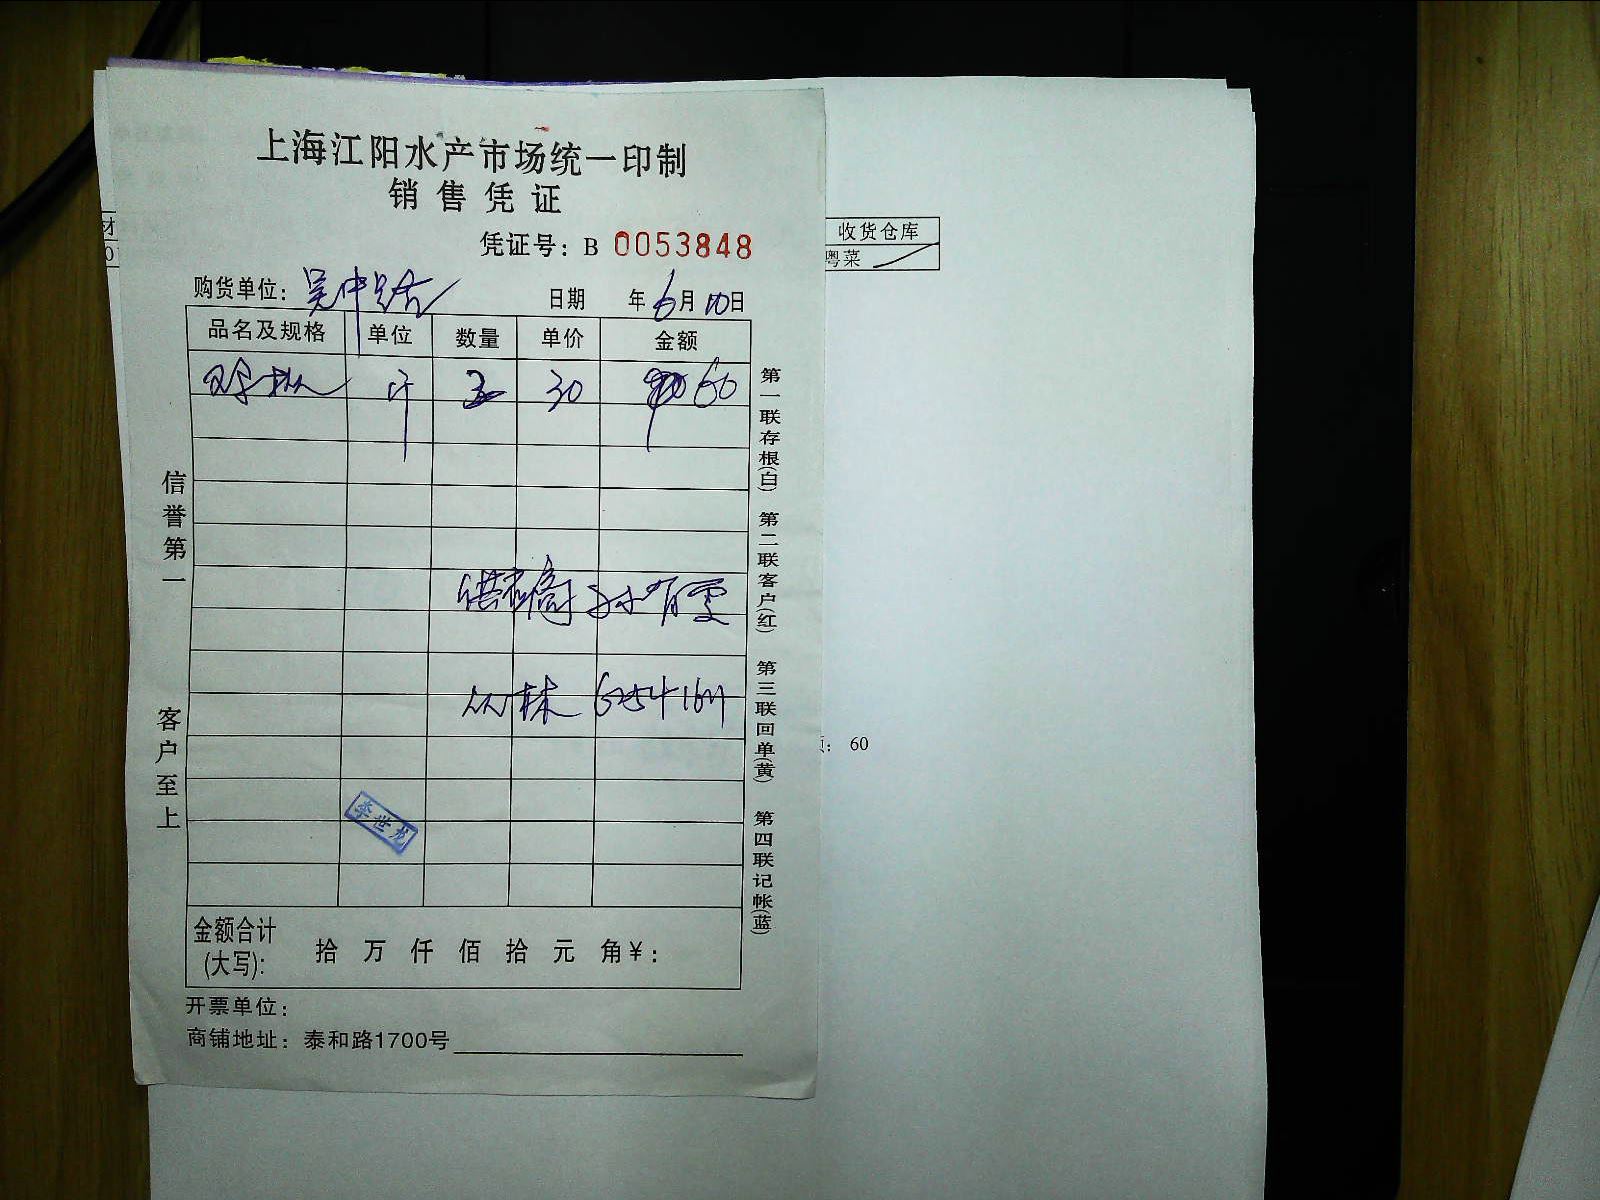 上海江阳水产市场统一印制
销售凭证
凭证号：B 0053848
购货单位：吴中路 日期 年6月10日
品名及规格 单位 数量 单价 金额
斤 2 30 60
供应商
林
李世龙
金额合计(大写)： 拾 万 仟 佰 拾 元 角￥：
开票单位：
商铺地址：泰和路1700号
信誉第一
客户至上
第一联存根(白) 第二联客户(红) 第三联回单(黄) 第四联记帐(蓝)
收货仓库
粤菜
：60
材
0